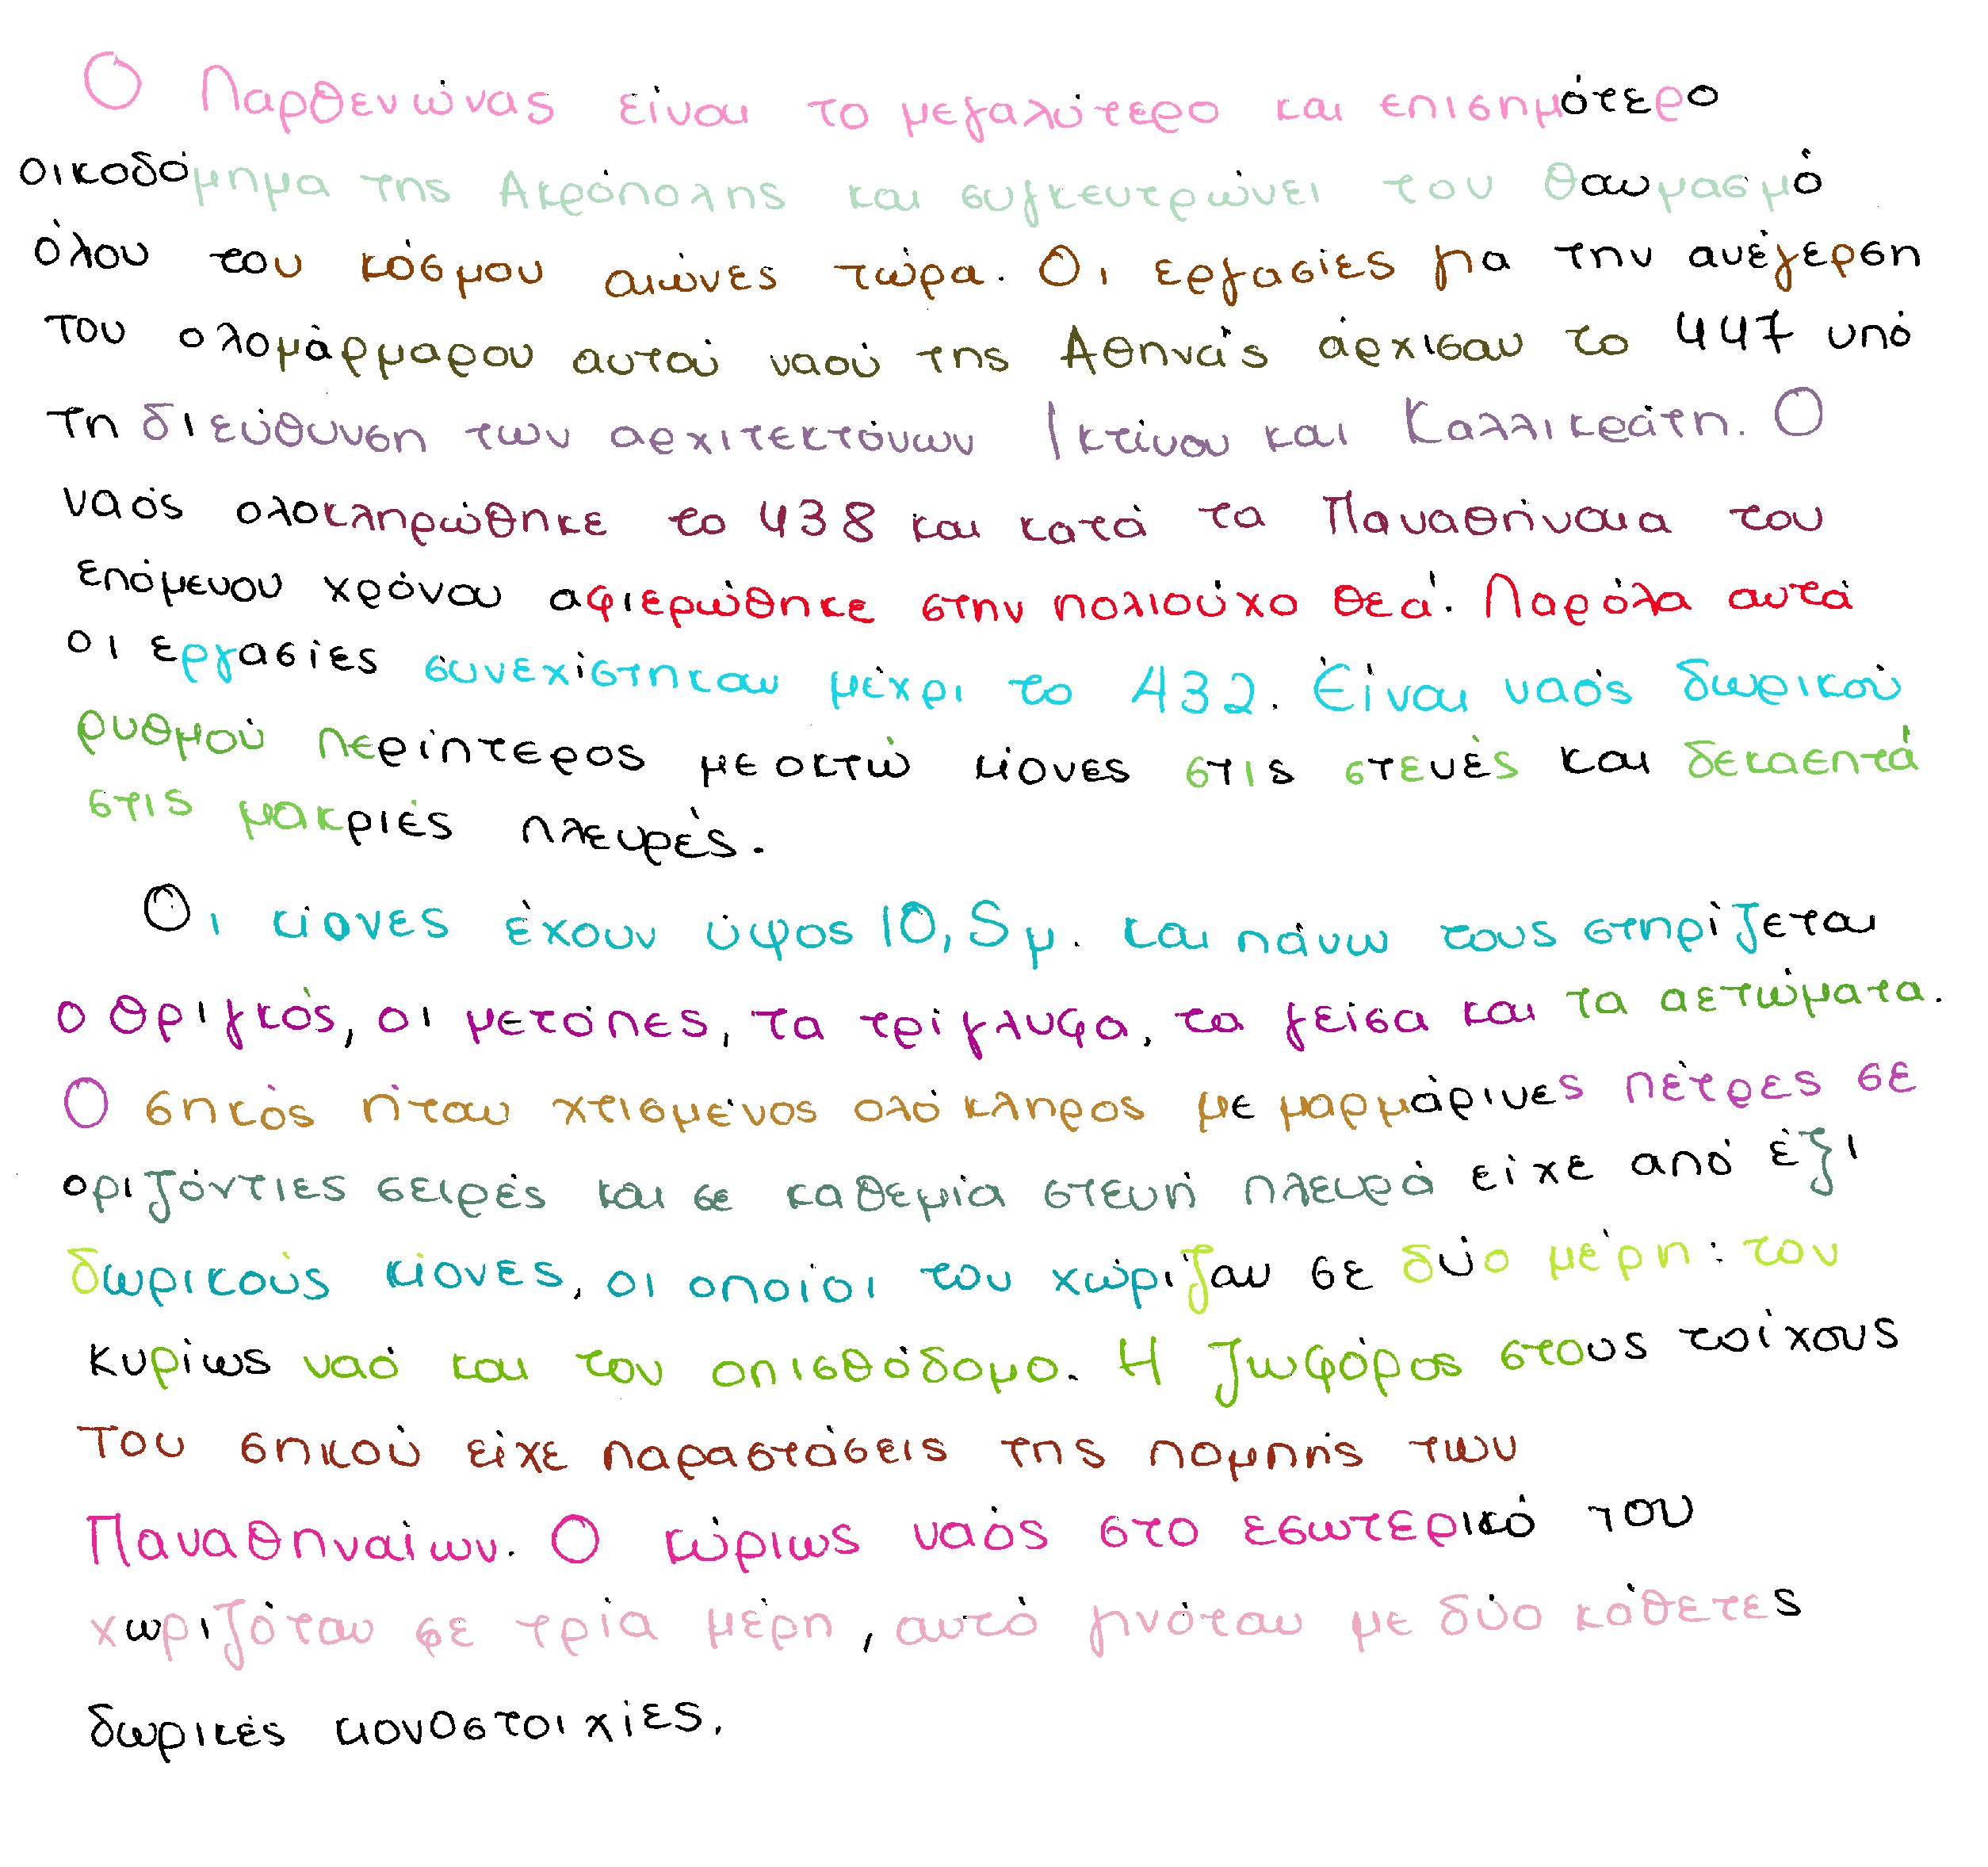 Ο Παρθενώνας είναι το μεγαλύτερο και επισημότερο
οικοδόμημα της Ακρόπολης και συγκεντρώνει τον θαυμασμό
όλου του κόσμου αιώνες τώρα. Οι εργασίες για την ανέγερση
του ολομάρμαρου αυτού ναού της Αθηνάς άρχισαν το 447 υπό
τη διεύθυνση των αρχιτεκτόνων Ικτίνου και Καλλικράτη. Ο
ναός ολοκληρώθηκε το 438 και κατά τα Παναθήναια του
επόμενου χρόνου αφιερώθηκε στην πολιούχο θεά. Παρόλα αυτά
οι εργασίες συνεχίστηκαν μέχρι το 432. Είναι ναός δωρικού
ρυθμού περίπτερος με οκτώ κίονες στις στενές και δεκαεπτά
στις μακριές πλευρές.
Οι κίονες έχουν ύψος 10,5μ. και πάνω τους στηρίζεται
ο θριγκός, οι μετόπες, τα τρίγλυφα, τα γείσα και τα αετώματα.
Ο σηκός ήταν χτισμένος ολόκληρος με μαρμάρινες πέτρες σε
οριζόντιες σειρές και σε καθεμία στενή πλευρά είχε από έξι
δωρικούς κίονες, οι οποίοι τον χώριζαν σε δύο μέρη: τον
κυρίως ναό και τον οπισθόδομο. Η ζωφόρος στους τοίχους
του σηκού είχε παραστάσεις της πομπής των
Παναθηναίων. Ο κύριως ναός στο εσωτερικό του
χωριζόταν σε τρία μέρη, αυτό γινόταν με δύο κάθετες
δωρικές κιονοστοιχίες.